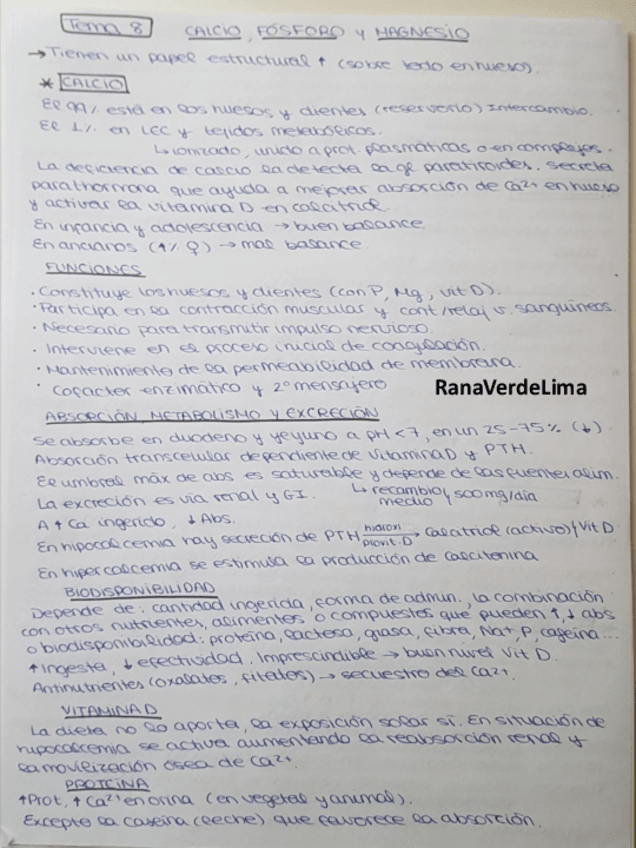 Tema 8 CALCIO, FÓSFORO Y MAGNESIO
→ Tienen un papel estructural ↑ (sobre todo en hueso).
* CALCIO
El 99% está en los huesos y dientes (reservorio) Intercambio.
El 1% en LCC y tejidos metabólicos.
↳ ionizado, unido a prot. plasmáticas o en complejos.
La deficiencia de calcio la detecta la gl paratiroides. Secreta
parathormona que ayuda a mejorar absorción de Ca²⁺ en hueso
y activar la vitamina D en calcitriol.
En infancia y adolescencia → buen balance
En ancianos (↑% ♀) → mal balance.
FUNCIONES
· Constituye los huesos y dientes (con P, Mg, vit D).
· Participa en la contracción muscular y cont/relaj v. sanguíneos.
· Necesario para transmitir impulso nervioso.
· Interviene en el proceso inicial de coagulación.
· Mantenimiento de la permeabilidad de membrana.
· Cofactor enzimático y 2º mensajero
RanaVerdeLima
ABSORCIÓN, METABOLISMO Y EXCRECIÓN
Se absorbe en duodeno y yeyuno a pH<7, en un 25-75% (↓)
Absorción transcelular dependiente de vitamina D y PTH.
El umbral máx de abs es saturable y depende de las fuentes alim.
La excreción es vía renal y GI. ↳ recambio medio 500mg/día
A ↑ Ca ingerido, ↓ Abs.
En hipocalcemia hay secreción de PTH hidroxi provit. D → Calcitriol (activo)/Vit D
En hipercalcemia se estimula la producción de calcitonina
BIODISPONIBILIDAD
Depende de: cantidad ingerida, forma de admin., la combinación
con otros nutrientes, alimentos o compuestos que pueden ↑,↓ abs
o biodisponibilidad: proteína, lactosa, grasa, fibra, Na⁺, P, cafeína...
↑ Ingesta, ↓ efectividad. Imprescindible → buen nivel Vit D.
Antinutrientes (oxalatos, fitatos) → secuestro del Ca²⁺.
VITAMINA D
La dieta no la aporta, la exposición solar sí. En situación de
hipocalcemia se activa aumentando la reabsorción renal y
la movilización ósea de Ca²⁺.
PROTEÍNA
↑Prot, ↑Ca²⁺ en orina (en vegetal y animal).
Excepto la caseína (leche) que favorece la absorción.